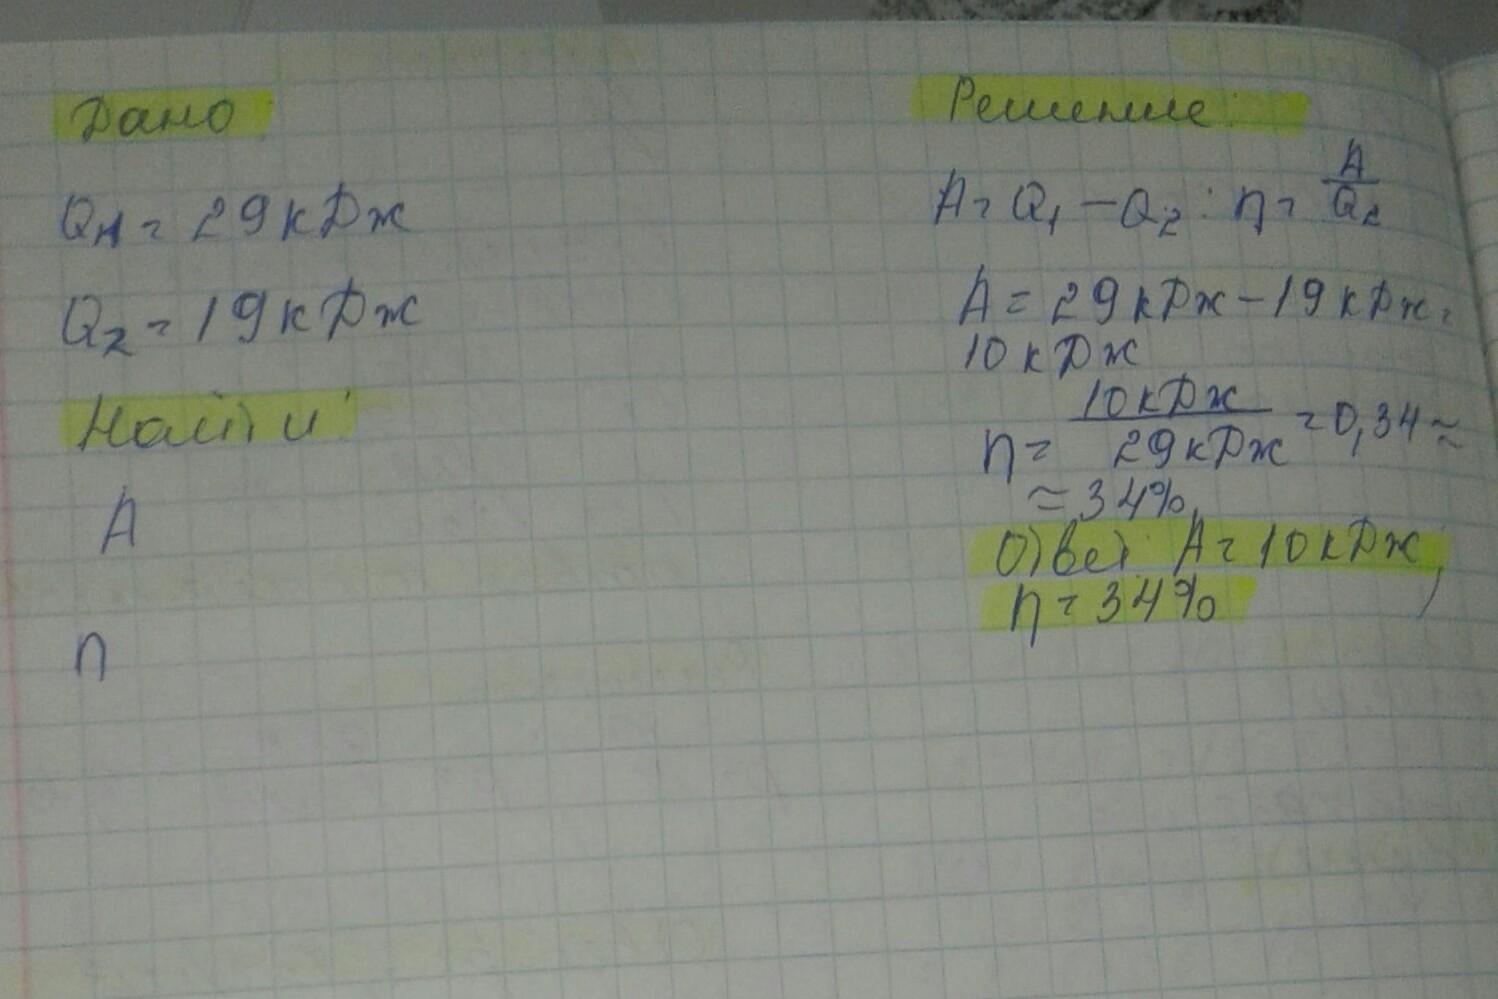 Дано
Q1 = 29 кДж
Q2 = 19 кДж
Найти:
A
η
Решение:
A = Q1 - Q2 : η = A/Q2
A = 29 кДж - 19 кДж =
10 кДж
η = 10 кДж/29 кДж = 0,34 ≈
≈ 34%
Ответ: A = 10 кДж;
η = 34%